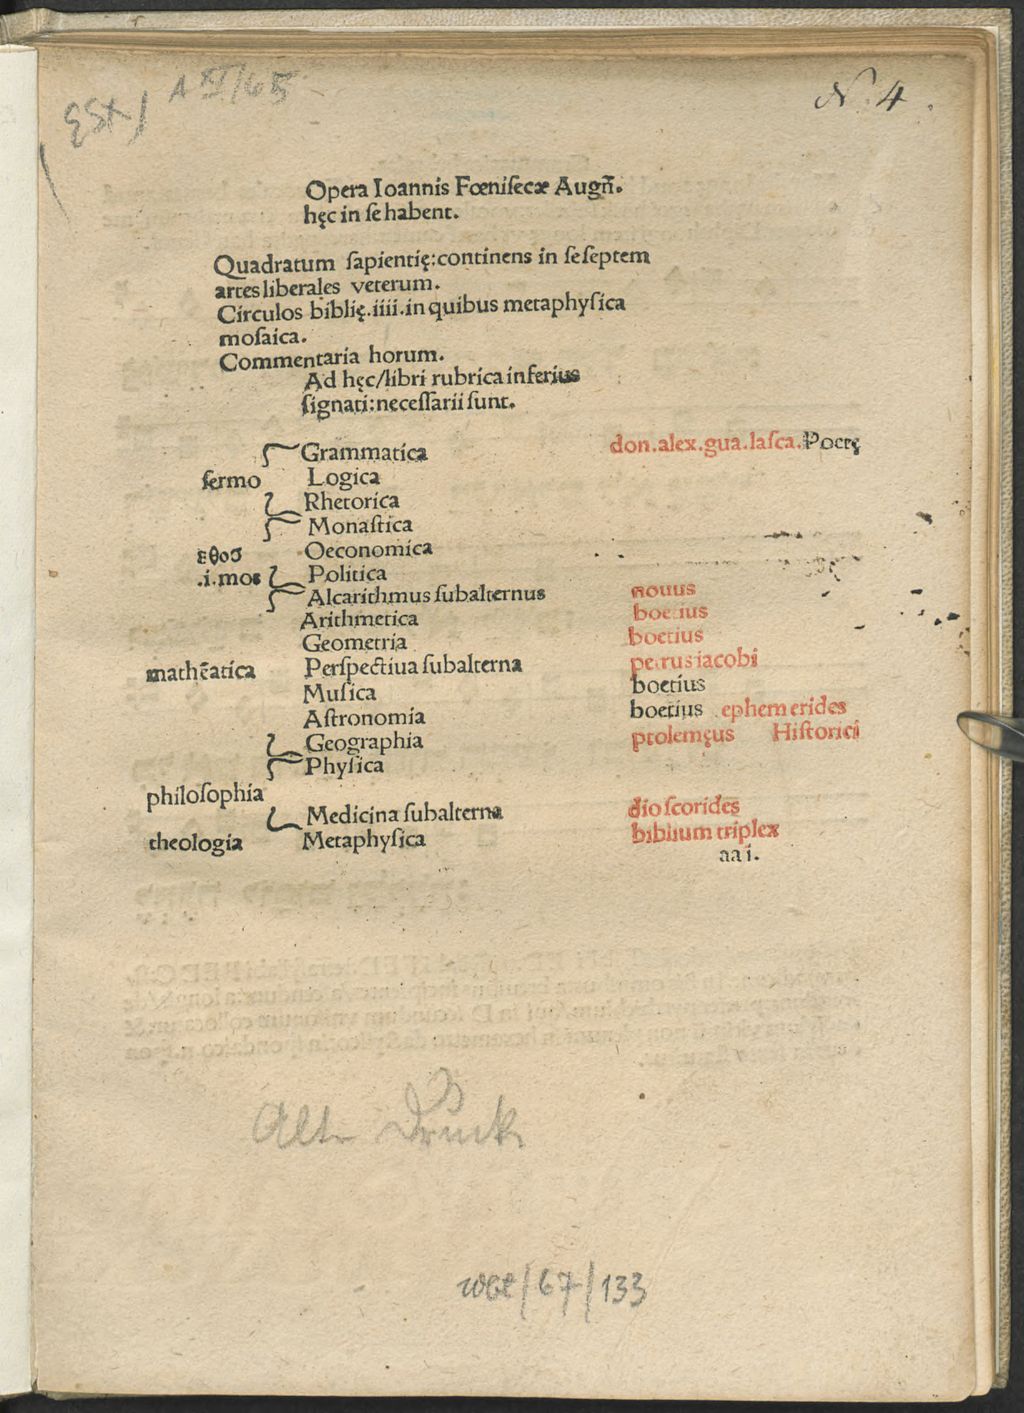 A VI/65
N. 4.
Opera Ioannis Fœnisecæ Augñ.
hęc in se habent.
Quadratum sapientię:continens in se septem
artes liberales veterum.
Circulos biblię.iiii.in quibus metaphysica
mosaica.
Commentaria horum.
Ad hęc/libri rubrica inferius
signati:necessarii sunt.
Grammatica don.alex.gua.lasca.Poetę
sermo Logica
Rhetorica
Monastica
εθοσ Oeconomica
.i.mos Politica
Alcarithmus subalternus nouus
Arithmetica boetius
Geometria boetius
mathẽatica Perspectiua subalterna petrus iacobi
Musica boetius
Astronomia boetius ephemerides
Geographia ptolemęus Historici
Physica
philosophia
Medicina subalterna dioscorides
theologia Metaphysica biblium triplex
aa i.
Alte Druck
wbt/67/133